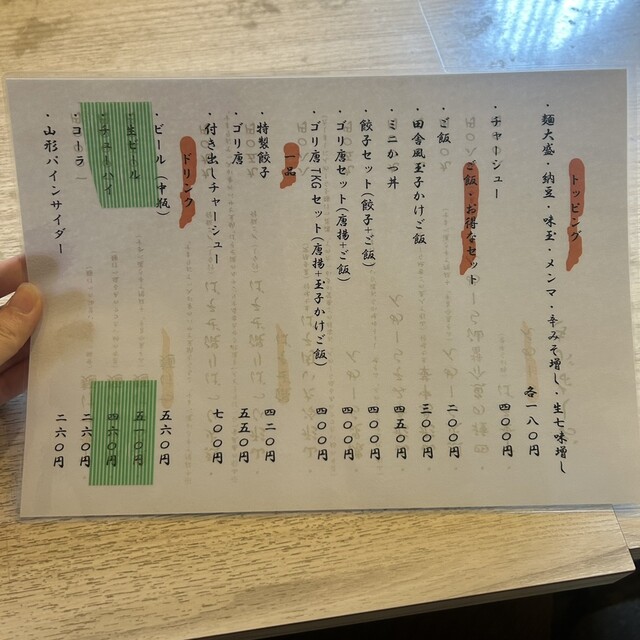 トッピング
・麺大盛・納豆・味玉・メンマ・辛みそ増し・生七味増し
各一八〇円
・チャーシュー 四〇〇円
ご飯・お得なセット
・ご飯 二〇〇円
・田舎風玉子かけご飯 三〇〇円
・ミニかつ丼 四五〇円
・餃子セット(餃子+ご飯) 四〇〇円
・ゴリ唐セット(唐揚+ご飯) 四〇〇円
・ゴリ唐TKGセット(唐揚+玉子かけご飯) 四〇〇円
一品
・特製餃子 四二〇円
・ゴリ唐 五五〇円
・付き出しチャーシュー 七〇〇円
ドリンク
・ビール(中瓶) 五六〇円
・生ビール 五一〇円
・チューハイ 四六〇円
・コーラ 二六〇円
・山形パインサイダー 二六〇円